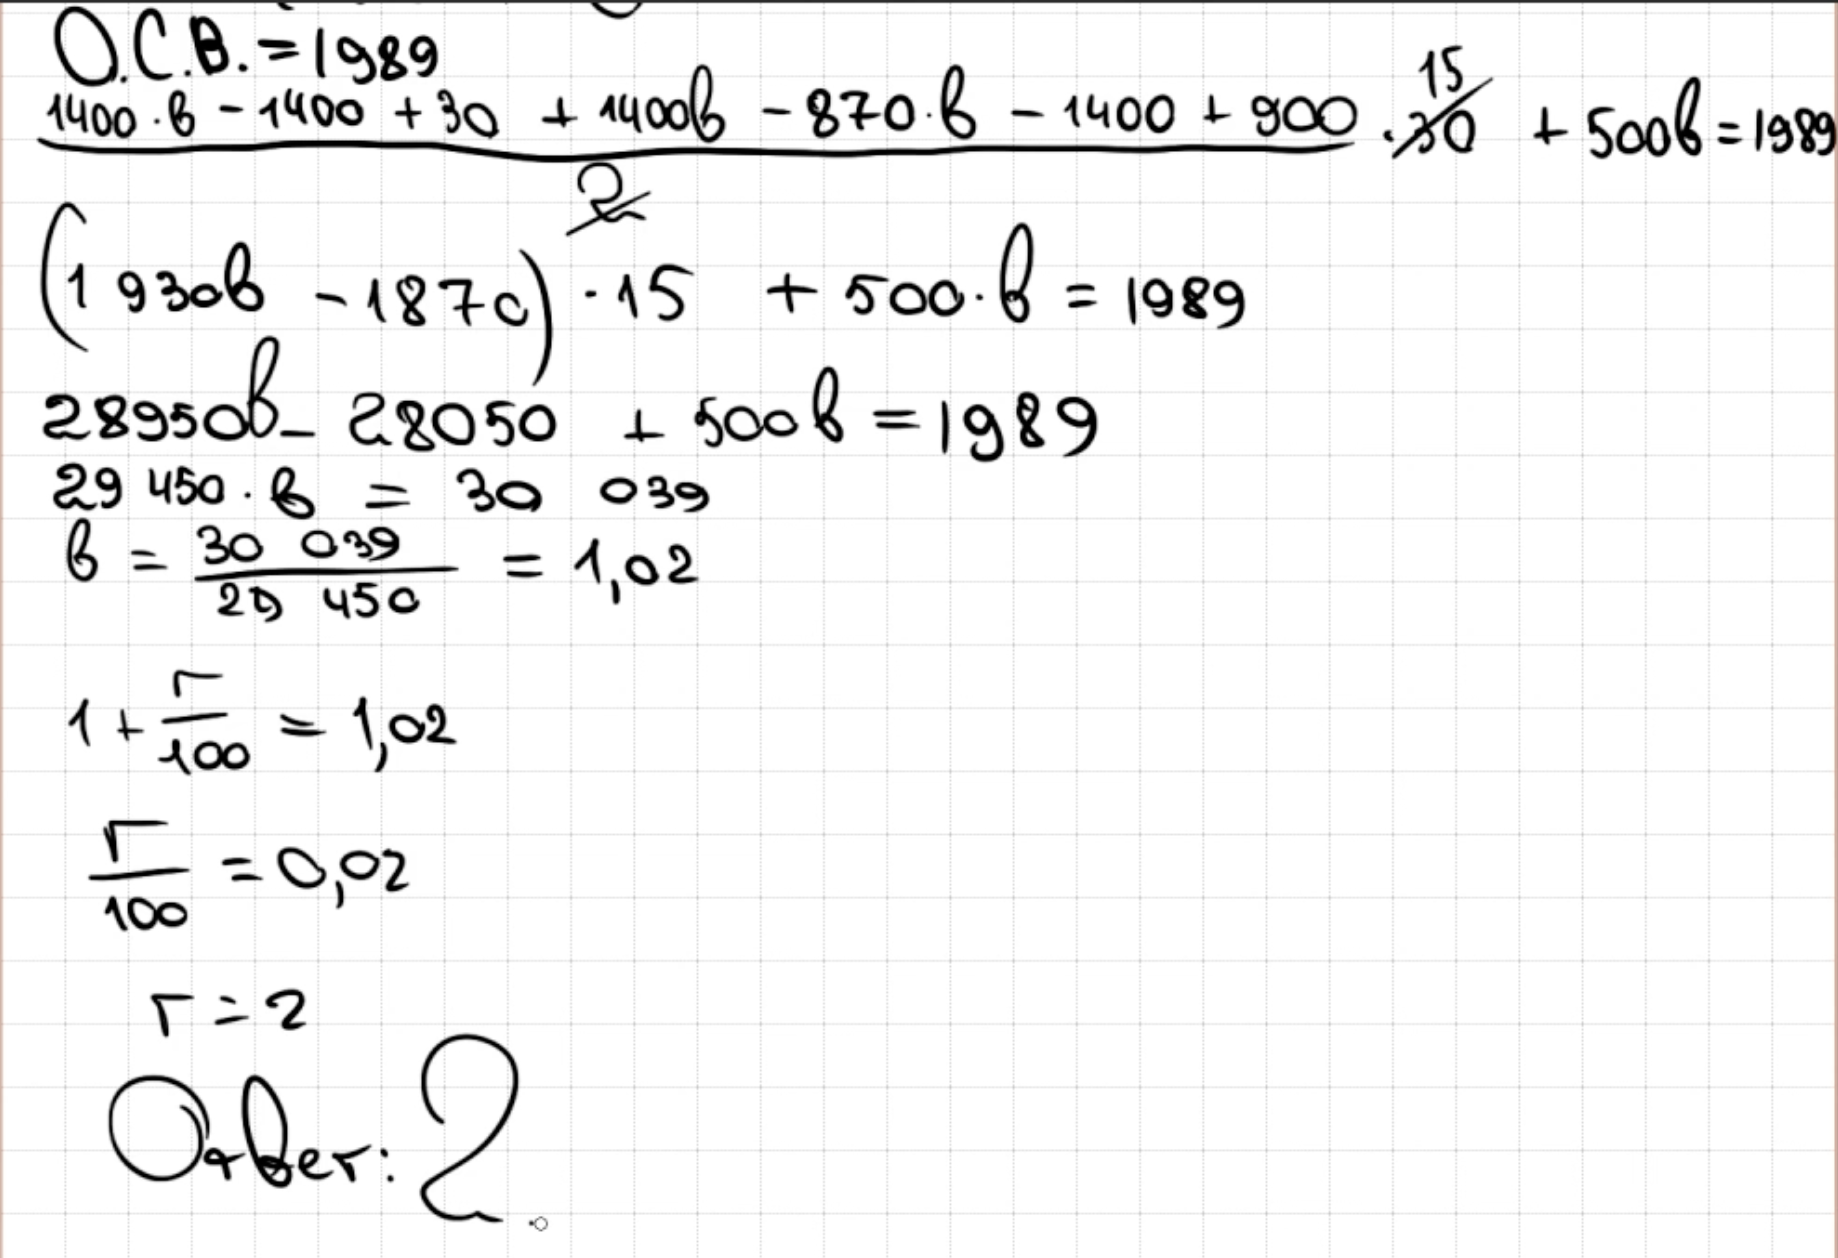 О.С.В. = 1989
(1400·b - 1400 + 30 + 1400b - 870·b - 1400 + 900)/2 · 30 15 + 500b = 1989
(1930b - 1870) · 15 + 500·b = 1989
28950b - 28050 + 500b = 1989
29 450·b = 30 039
b = 30 039 / 29 450 = 1,02
1 + r/100 = 1,02
r/100 = 0,02
r = 2
Ответ: 2.